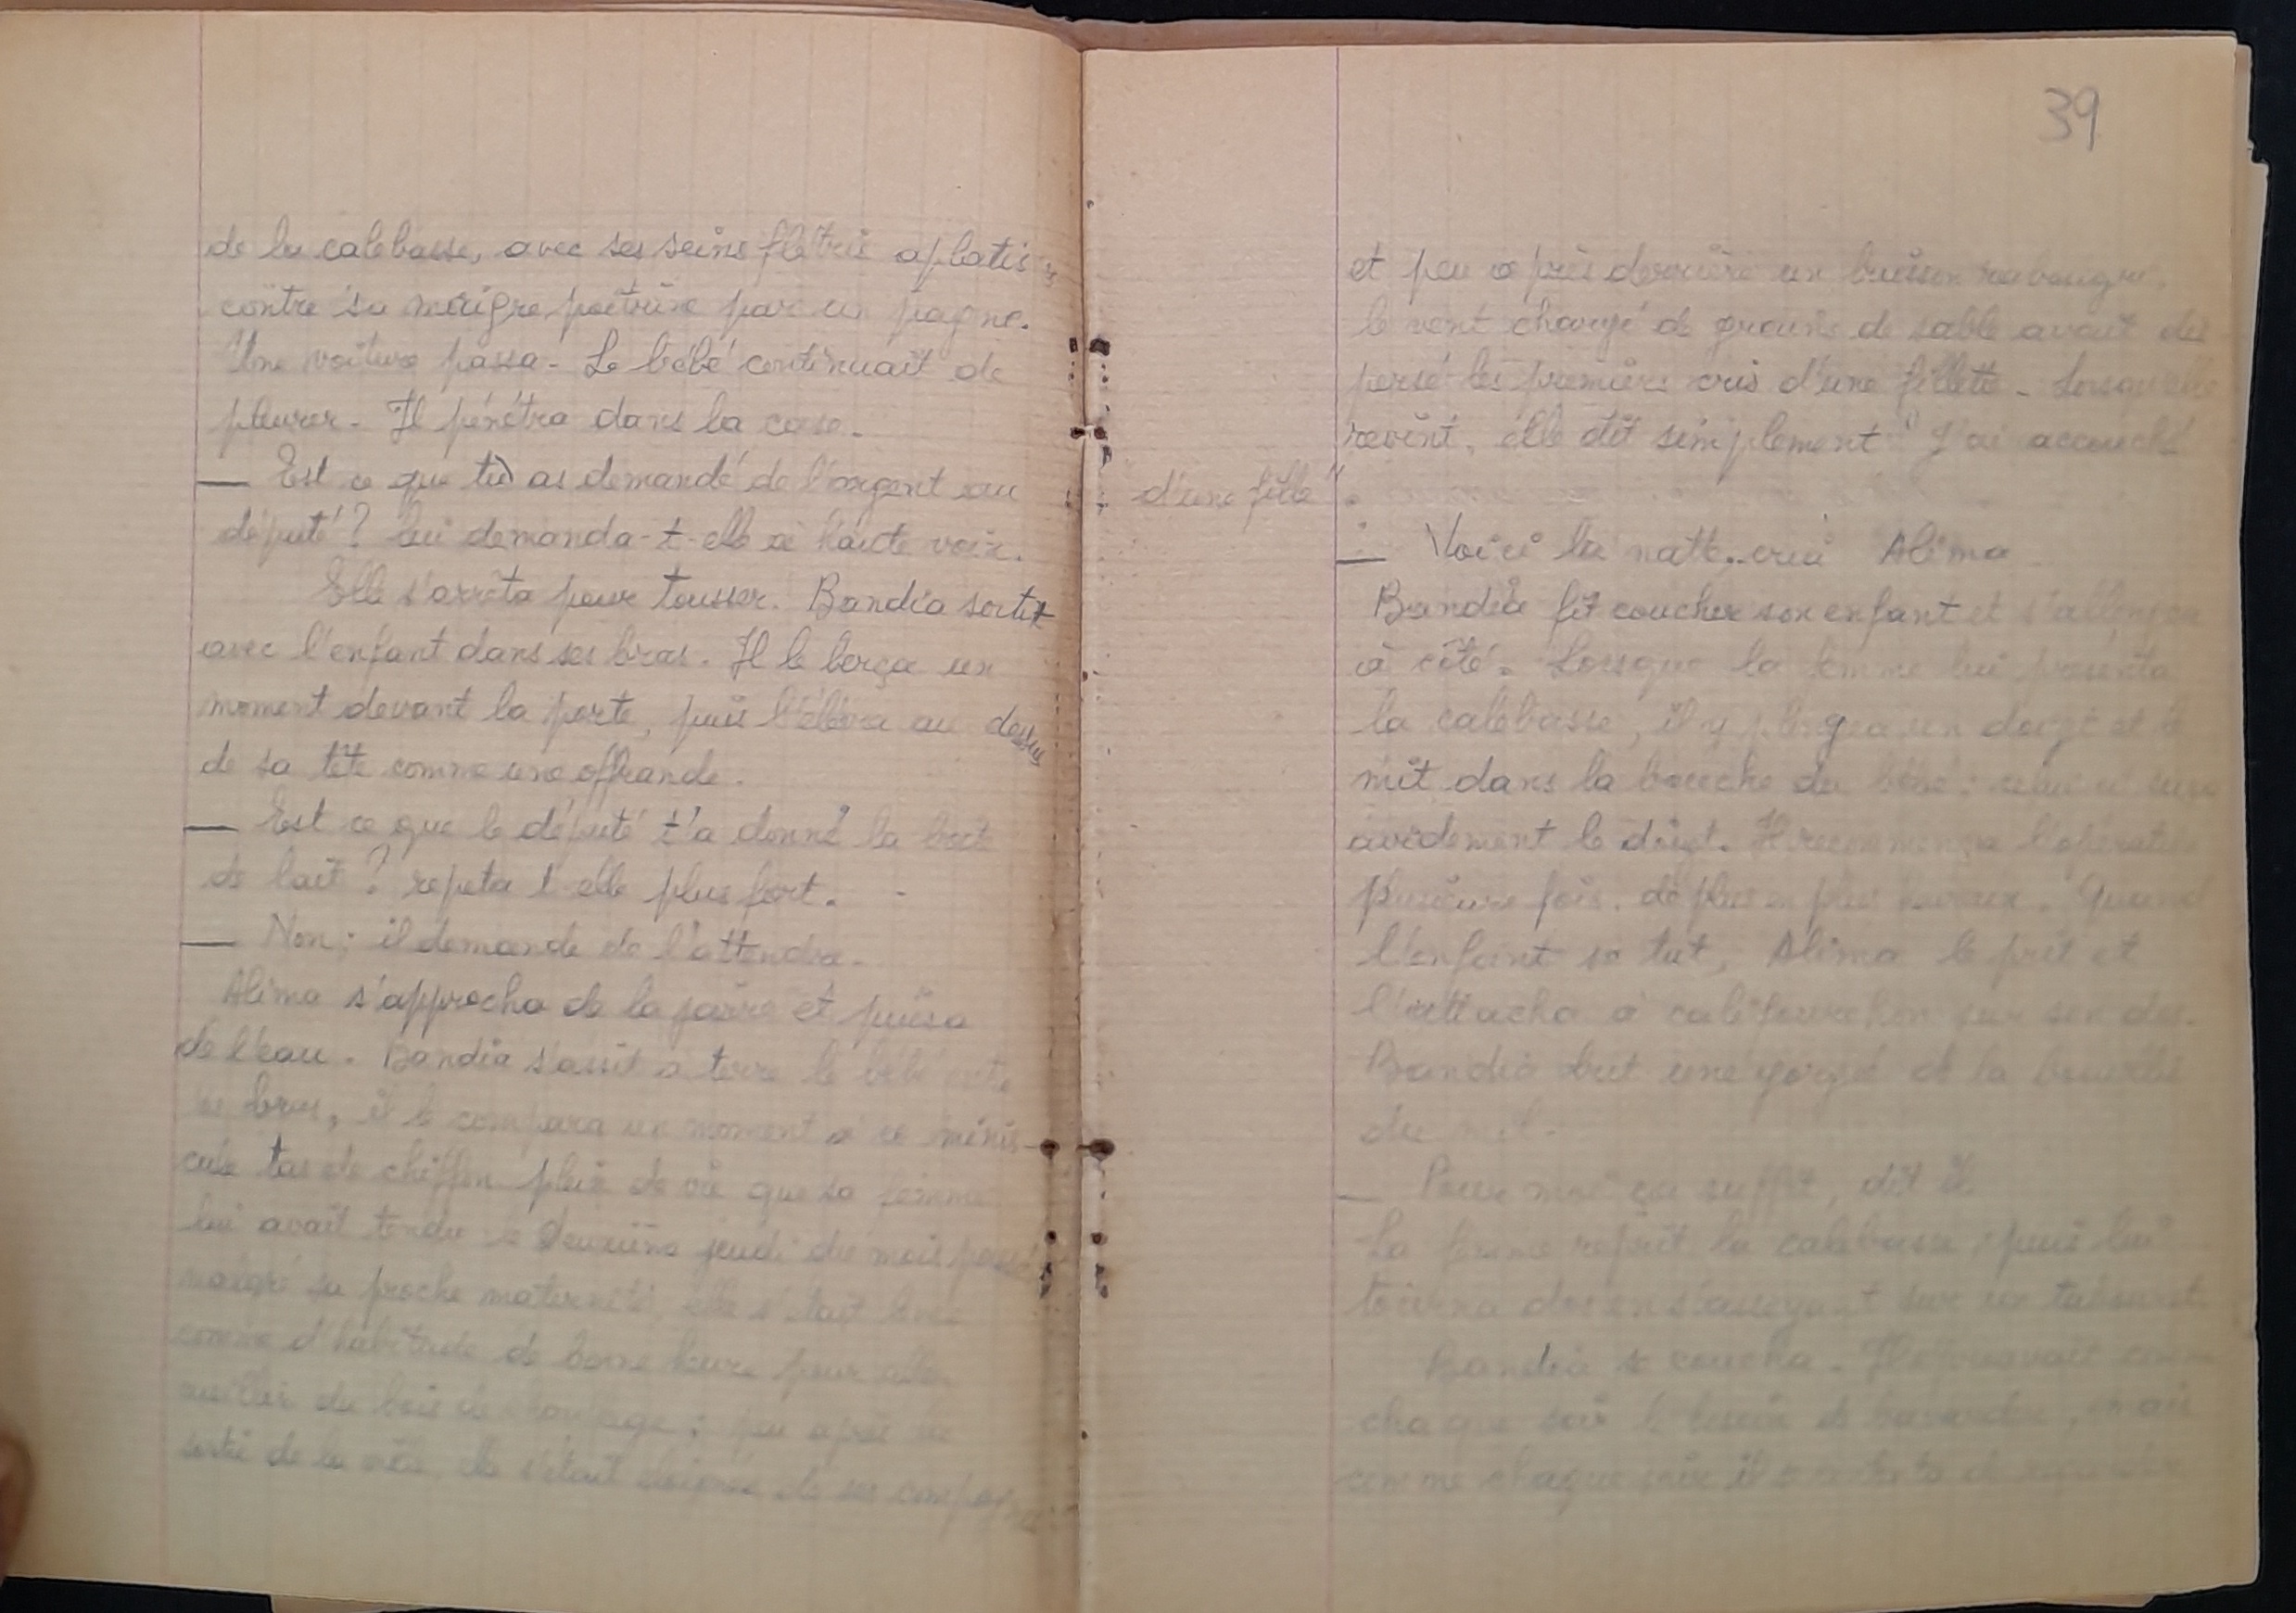 de la calebasse, avec ses seins flétris aplatis
contre sa maigre poitrine par un pagne.
Une voiture passa - Le bébé continuait de
pleurer - Il pénétra dans la case.
— Est ce que tu as demandé de l'argent au
député ? lui demanda-t-elle à haute voix.
Elle s'arrêta pour tousser. Bandia sortit
avec l'enfant dans ses bras. Il le berça un
moment devant la porte, puis l'éleva au dessus
de sa tête comme une offrande.
— Est ce que le député t'a donné la boite
de lait ? repeta t elle plus fort.
— Non ; il demande de l'attendre.
Alima s'approcha de la jarre et puisa
de l'eau. Bandia s'assit a terre le bébé entre
les bras, il le compara un moment à ce minis-
cule tas de chiffon plein de vie que sa femme
lui avait tendu le deuxième jeudi du mois passé
malgré sa proche maternité, elle s'était levée
comme d'habitude de bonne heure pour aller
cueillir du bois de chauffage ; peu après la
sortie de la ville, elle s'était éloignée de ses compagnes
39
et peu après derrière un buisson rabougri,
le vent chargé de grains de sable avait dis
persé les premiers cris d'une fillette - Lorsqu'elle
revint, elle dit simplement " J'ai accouché
d'une fille".
— Voici la natte.. cria Alima
Bandia fit coucher son enfant et s'allongea
à côté. Lorsque la femme lui présenta
la calebasse, il y plongea un doigt et le
mit dans la bouche du bébé : celui ci suça
avidement le doigt. Il recommença l'opération
plusieurs fois. de plus en plus heureux. Quand
l'enfant se tut, Alima le prit et
l'attacha à califourchon sur son dos.
Bandia but une gorgée de la bouillie
du mil.
— Pour moi ça suffit, dit il
La femme reprit la calebasse, puis lui
tourna dos en s'asseyant sur un tabouret.
Bandia se coucha - Il éprouvait comme
chaque soir le besoin de bavarder, mais
comme chaque soir il se contenta de regarder